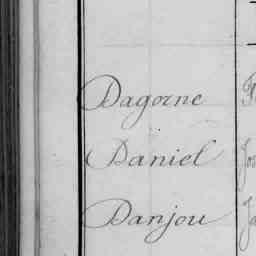 Dagorne
Daniel
Danjou